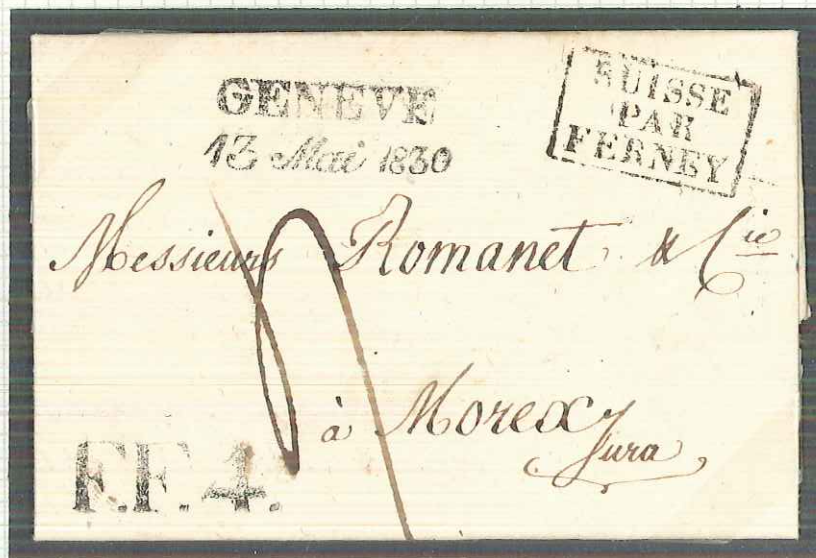 GENEVE
13 Mai 1830
SUISSE
PAR
FERNEY
Messieurs Romanet & Cie
à Morex
Jura
F.F.4.